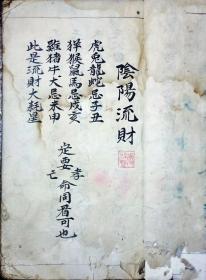 陰陽流財
虎兔龍蛇忌子丑
猴鼠馬忌戌亥
雞猪牛犬忌未申
此是流財大耗星
定要
亡命同看可也